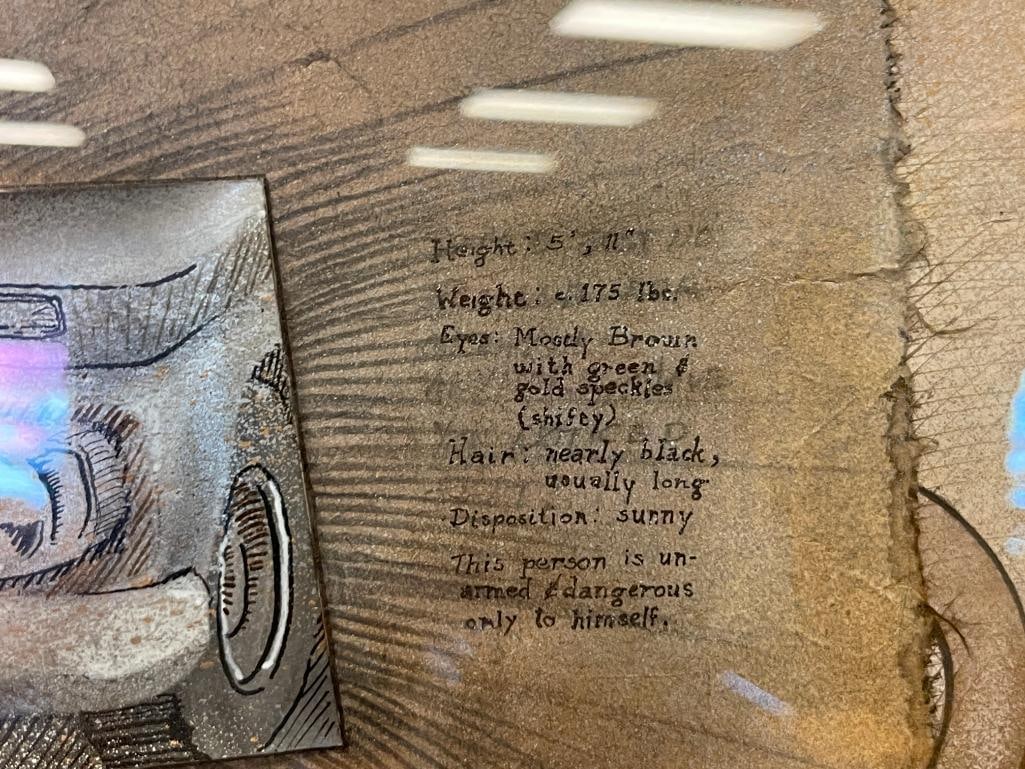 Height: 5', 11"
Weight: c. 175 lbs.
Eyes: Mostly Brown
with green &
gold speckles
(shifty)
Hair: nearly black,
usually long
Disposition: sunny
This person is un-
armed & dangerous
only to himself.